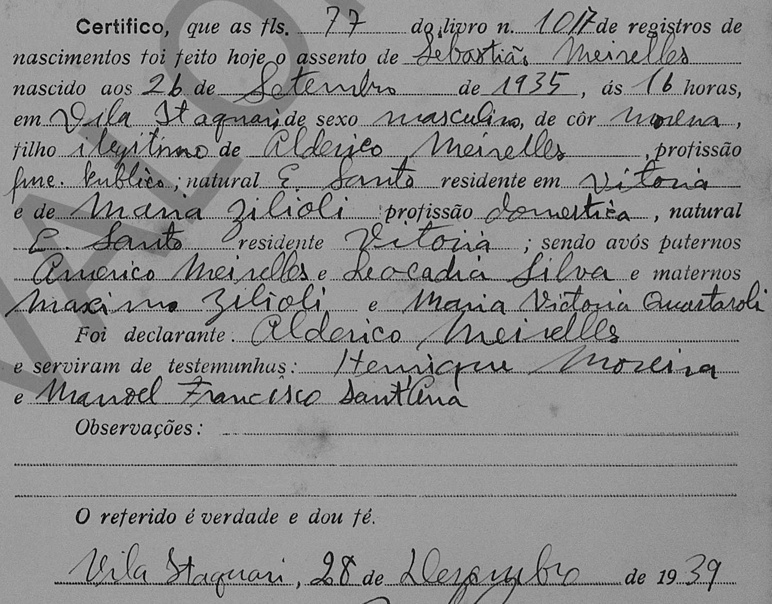 VALO
Certifico, que as fls. 77 do livro n. 10 de registros de
nascimentos foi feito hoje o assento de Sebastião Meirelles
nascido aos 26 de Setembro de 1935, ás 16 horas,
em Vila Itaquari, de sexo masculino, de côr morena,
filho ilegitimo de Alderico Meirelles, profissão
func. Publico; natural E. Santo residente em Vitoria
e de Maria Zilioli profissão domestica, natural
E. Santo residente Vitoria; sendo avós paternos
Americo Meirelles e Leocadia Silva e maternos
Maximo Zilioli e Maria Victoria Quartaroli
Foi declarante. Alderico Meirelles
e serviram de testemunhas: Henrique Moreira
e Manoel Francisco Sant'Ana
Observações:
O referido é verdade e dou fé.
Vila Itaquari, 28 de Dezembro de 1939